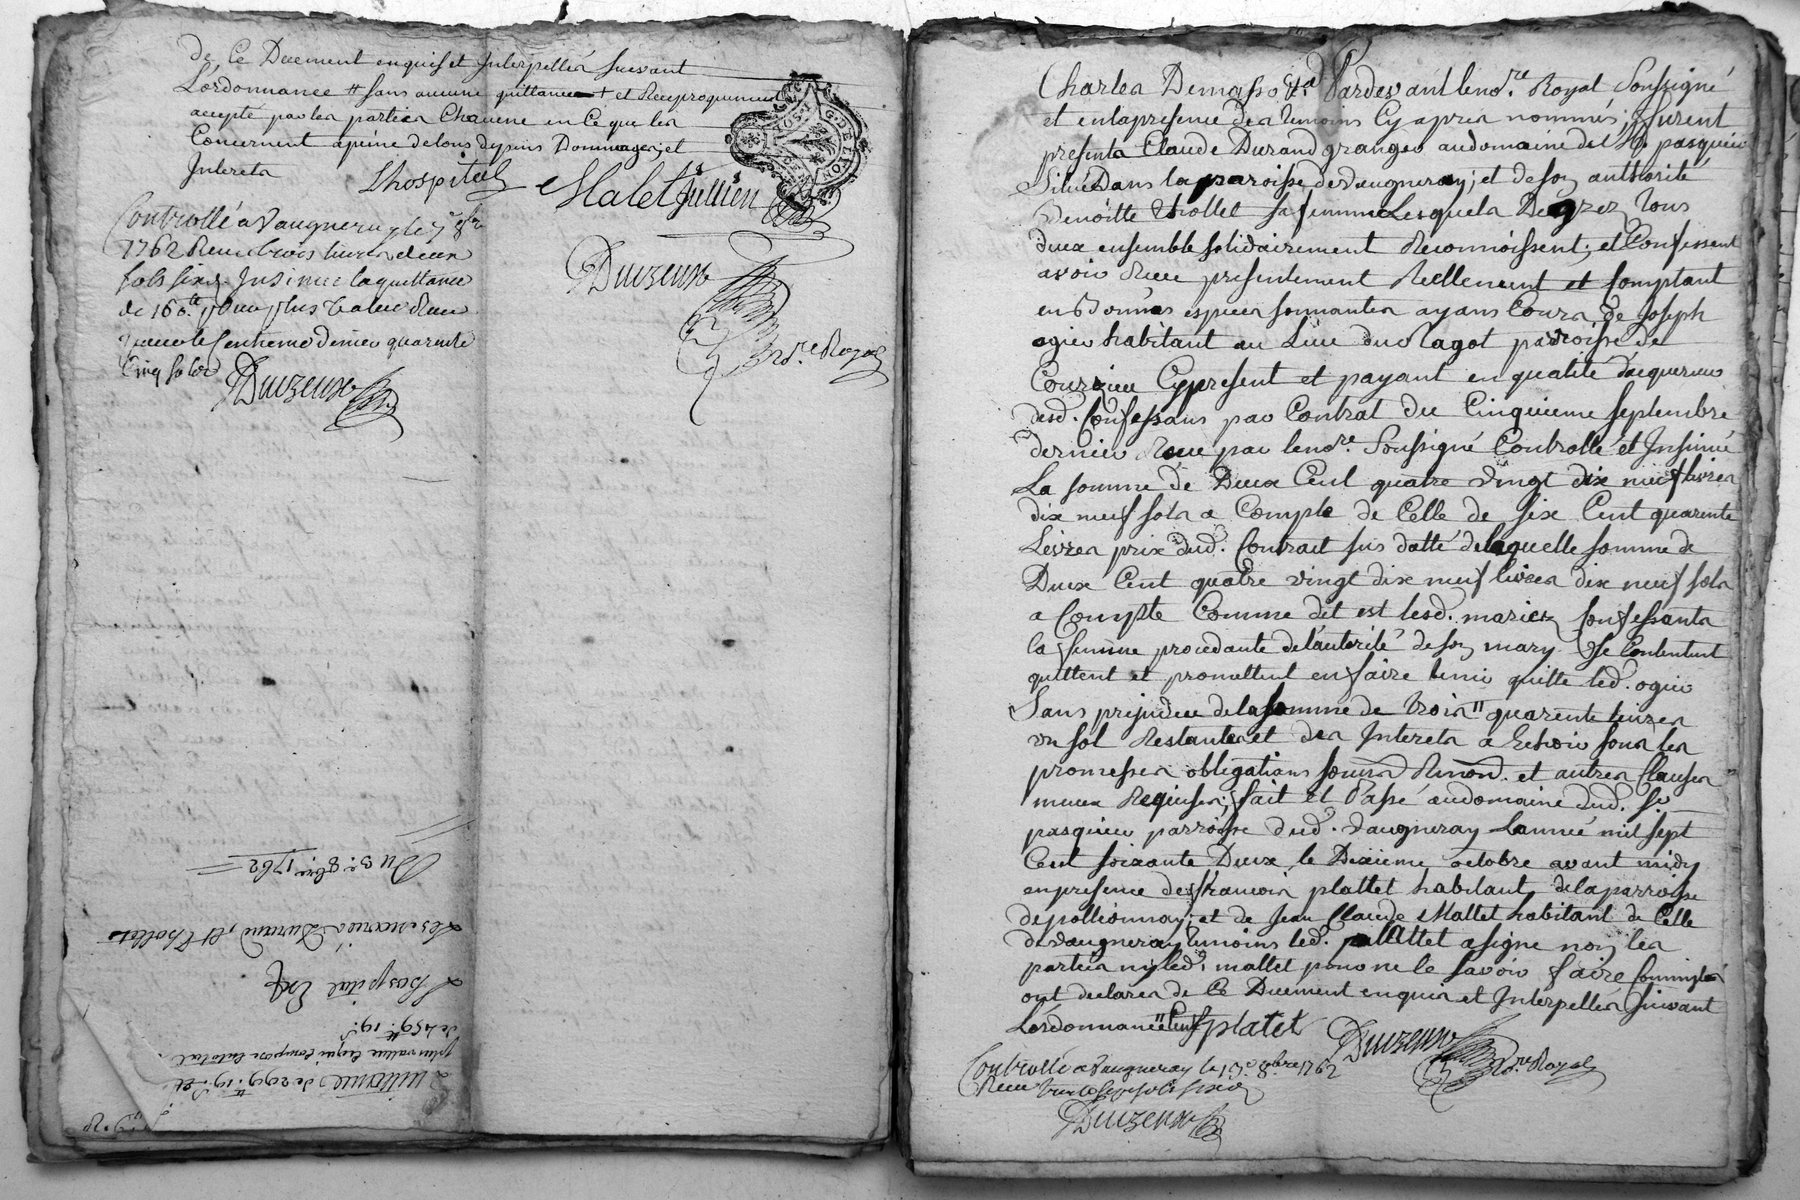 de Ce Duement enquis et Interpellés suivant
L'ordonnance # sans aucune quittance + et Reciproquement
accepté par les parties Chacune en Ce que les
Concernent a peine de tous depens Dommages, et
Interets
Lhospital Malet Jullien
Controllé a Vaugneray le 7e 8bre
1762 Receu trois livres deux
sols six d. Insinué la quittance
de 160 tt
quarente
Cinq sols
Duizeux
Duizeux
No.re Royal
G. DE LYON
Du 3e. 8bre 1762
Les mariés Durand, et Thollet
Lhospital
de 459 tt 19 s.
Quittances de 299 tt 19 s. et
Charles Demasso &a. Pardevant le no.re Royal Soussigné
et en la presence des temoins Cy apres nommés, furent
presents Claude Durand granger au domaine de Mr. pasquier
Situé Dans la parroisse de Vaugneray; et de son authorité
Benoitte thollet sa femme Lesquels De grez tous
deux ensemble solidairement Reconnoissent, et Confessent
avoir Receu presentement Reellement et Comptant
en Bonnes especes sonnantes ayans Cours de Joseph
ogier habitant au Lieu du Ragot parroisse de
Courzieu Cy present et payant en qualité d'acquereur
desd. Confessans par Contrat du Cinquieme septembre
dernier Receu par le no.re Soussigné Controllé et Insinué
La somme de Deux Cent quatre vingt dix neuf livres
dix neuf sols a Compte de Celle de six Cent quarente
Livres prix dud. Contrat sus datté de laquelle somme de
Deux Cent quatre vingt dix neuf livres dix neuf sols
a Compte Comme dit est lesd. mariez Confessants
la femme procedante de l'autorité de son mary Se Contentent
quittent et promettent en faire tenir quitte led. ogier
Sans prejudice de la somme de trois " quarente livres
un sol Restante et des Interets a Echoir sous les
promesses obligations soumis.ns Renon.ns et autres Clauses
mieux Requises; fait et Passé au domaine dud. Sr.
pasquier parroisse dud. Vaugneray L'année mil sept
Cent soixante Deux le Dixieme octobre avant midy
en presence de francois plattet habitant de la parroisse
de pollionnay; et de Jean Claude Mallet habitant de Celle
de Vaugneray temoins led. plattet a signé non les
parties ny led. mallet pour ne le savoir faire
ont declarés de Ce Duement enquis et Interpellés suivant
L'ordonnance " Cent platet Duizeux
No.re Royal
Controllé a Vaugneray le 15e. 8bre 1762
Receu
Duizeux